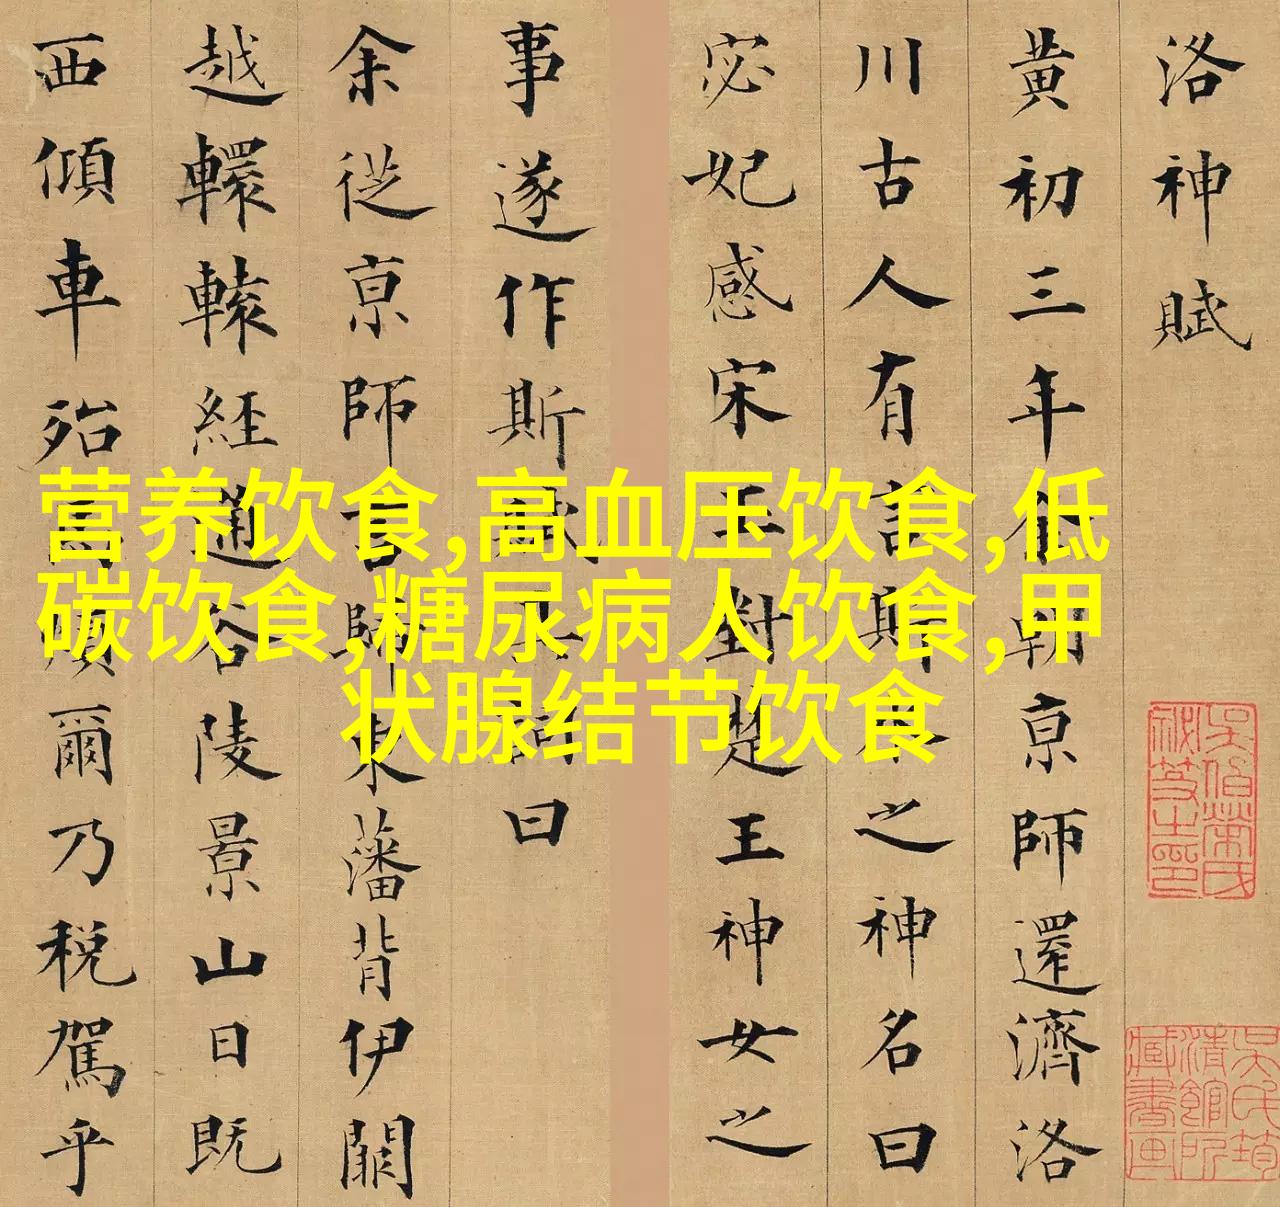 洛神賦
黄初三年余朝亰師還濟洛
川古人有言斯水之神名曰
宓妃感宋玉對楚王神女之
事遂作斯賦其詞曰
余從亰師言歸東藩背伊闕
越轘轅経通谷陵景山日既
西傾車殆馬煩爾乃稅駕乎
营养饮食,高血压饮食,低
碳饮食,糖尿病人饮食,甲
状腺结节饮食